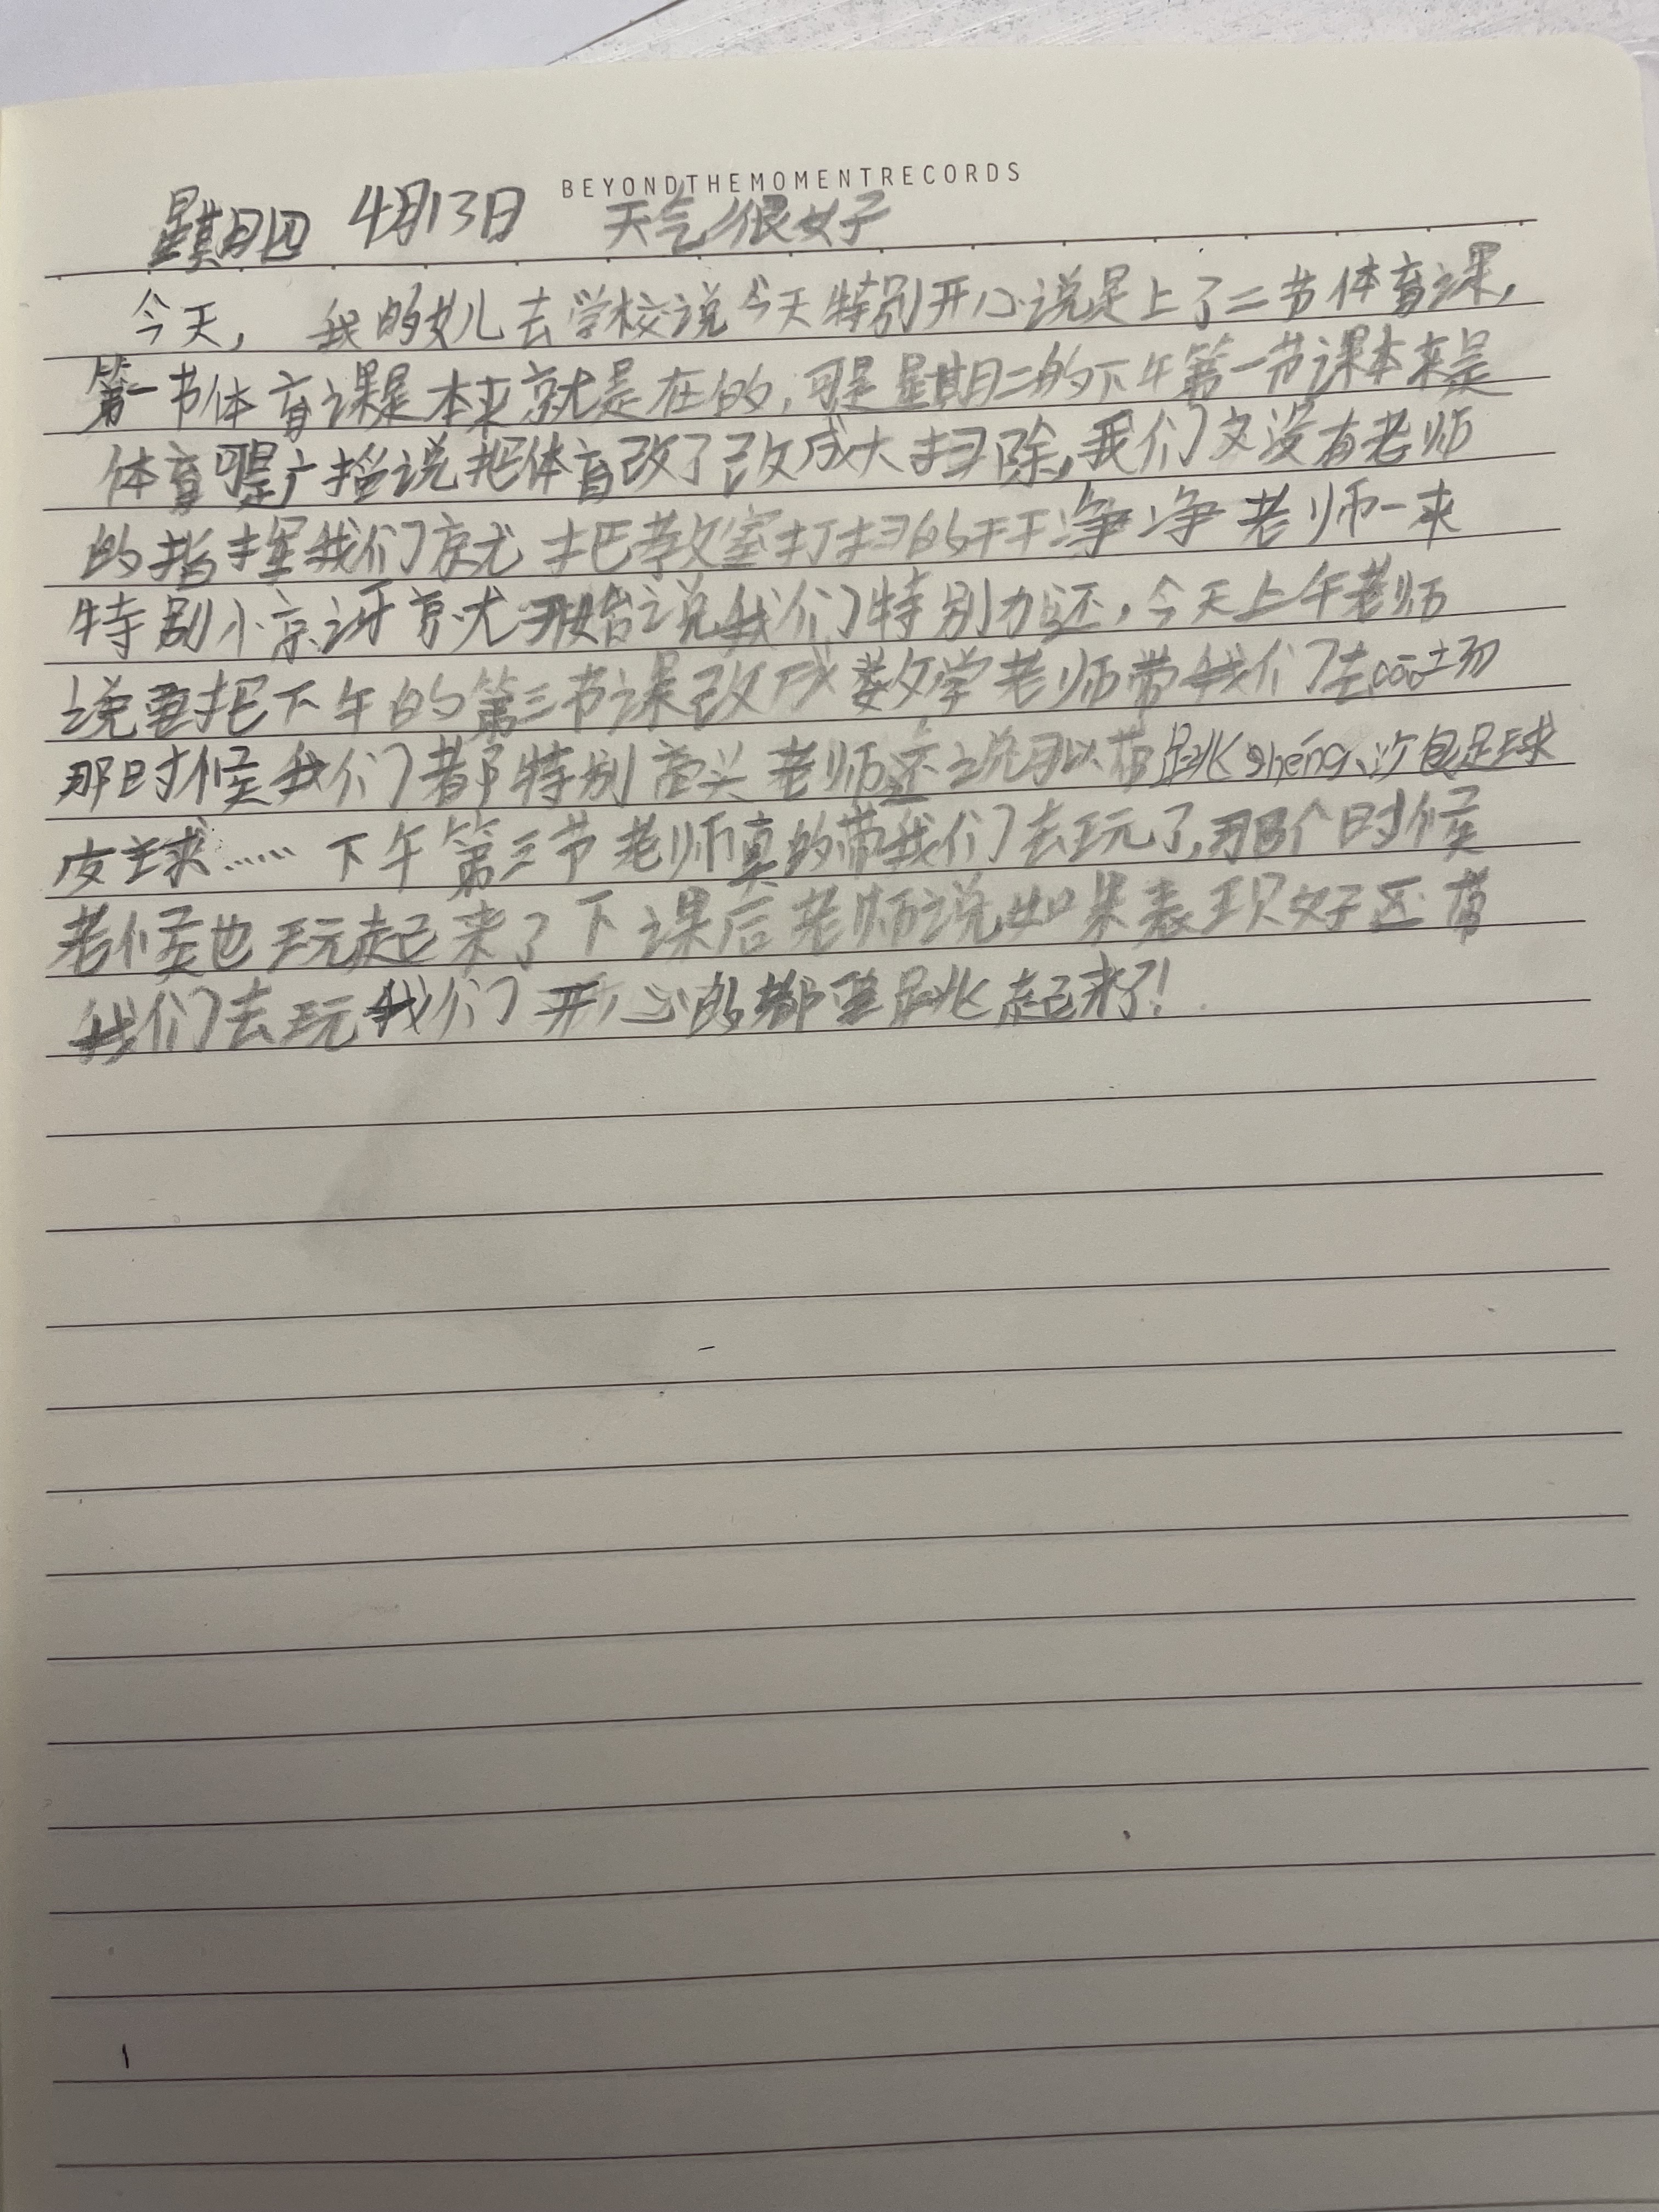 BEYONDTHEMOMENTRECORDS
星期四 4月13日 天气很好
今天, 我的女儿去学校说今天特别开心说是上了二节体育课,
第一节体育课是本来就是在的,可是星期二的下午第一节课本来是
体育可是广播说把体育改了改成大扫除,我们文没有老师
的指挥我们就把教室打扫的干干净净老师一来
特别惊讶就开始说我们特别力还,今天上午老师
说要把下午的第三节课改成数学老师带我们去cāo场
那时候我们都特别高兴老师还说可以带跳shéng、沙包足球
皮球…… 下午第三节老师真的带我们去玩了,那个时候
老候也玩起来了下课后老师说如果表现好还带
我们去玩我们开心的都要跳起来了!